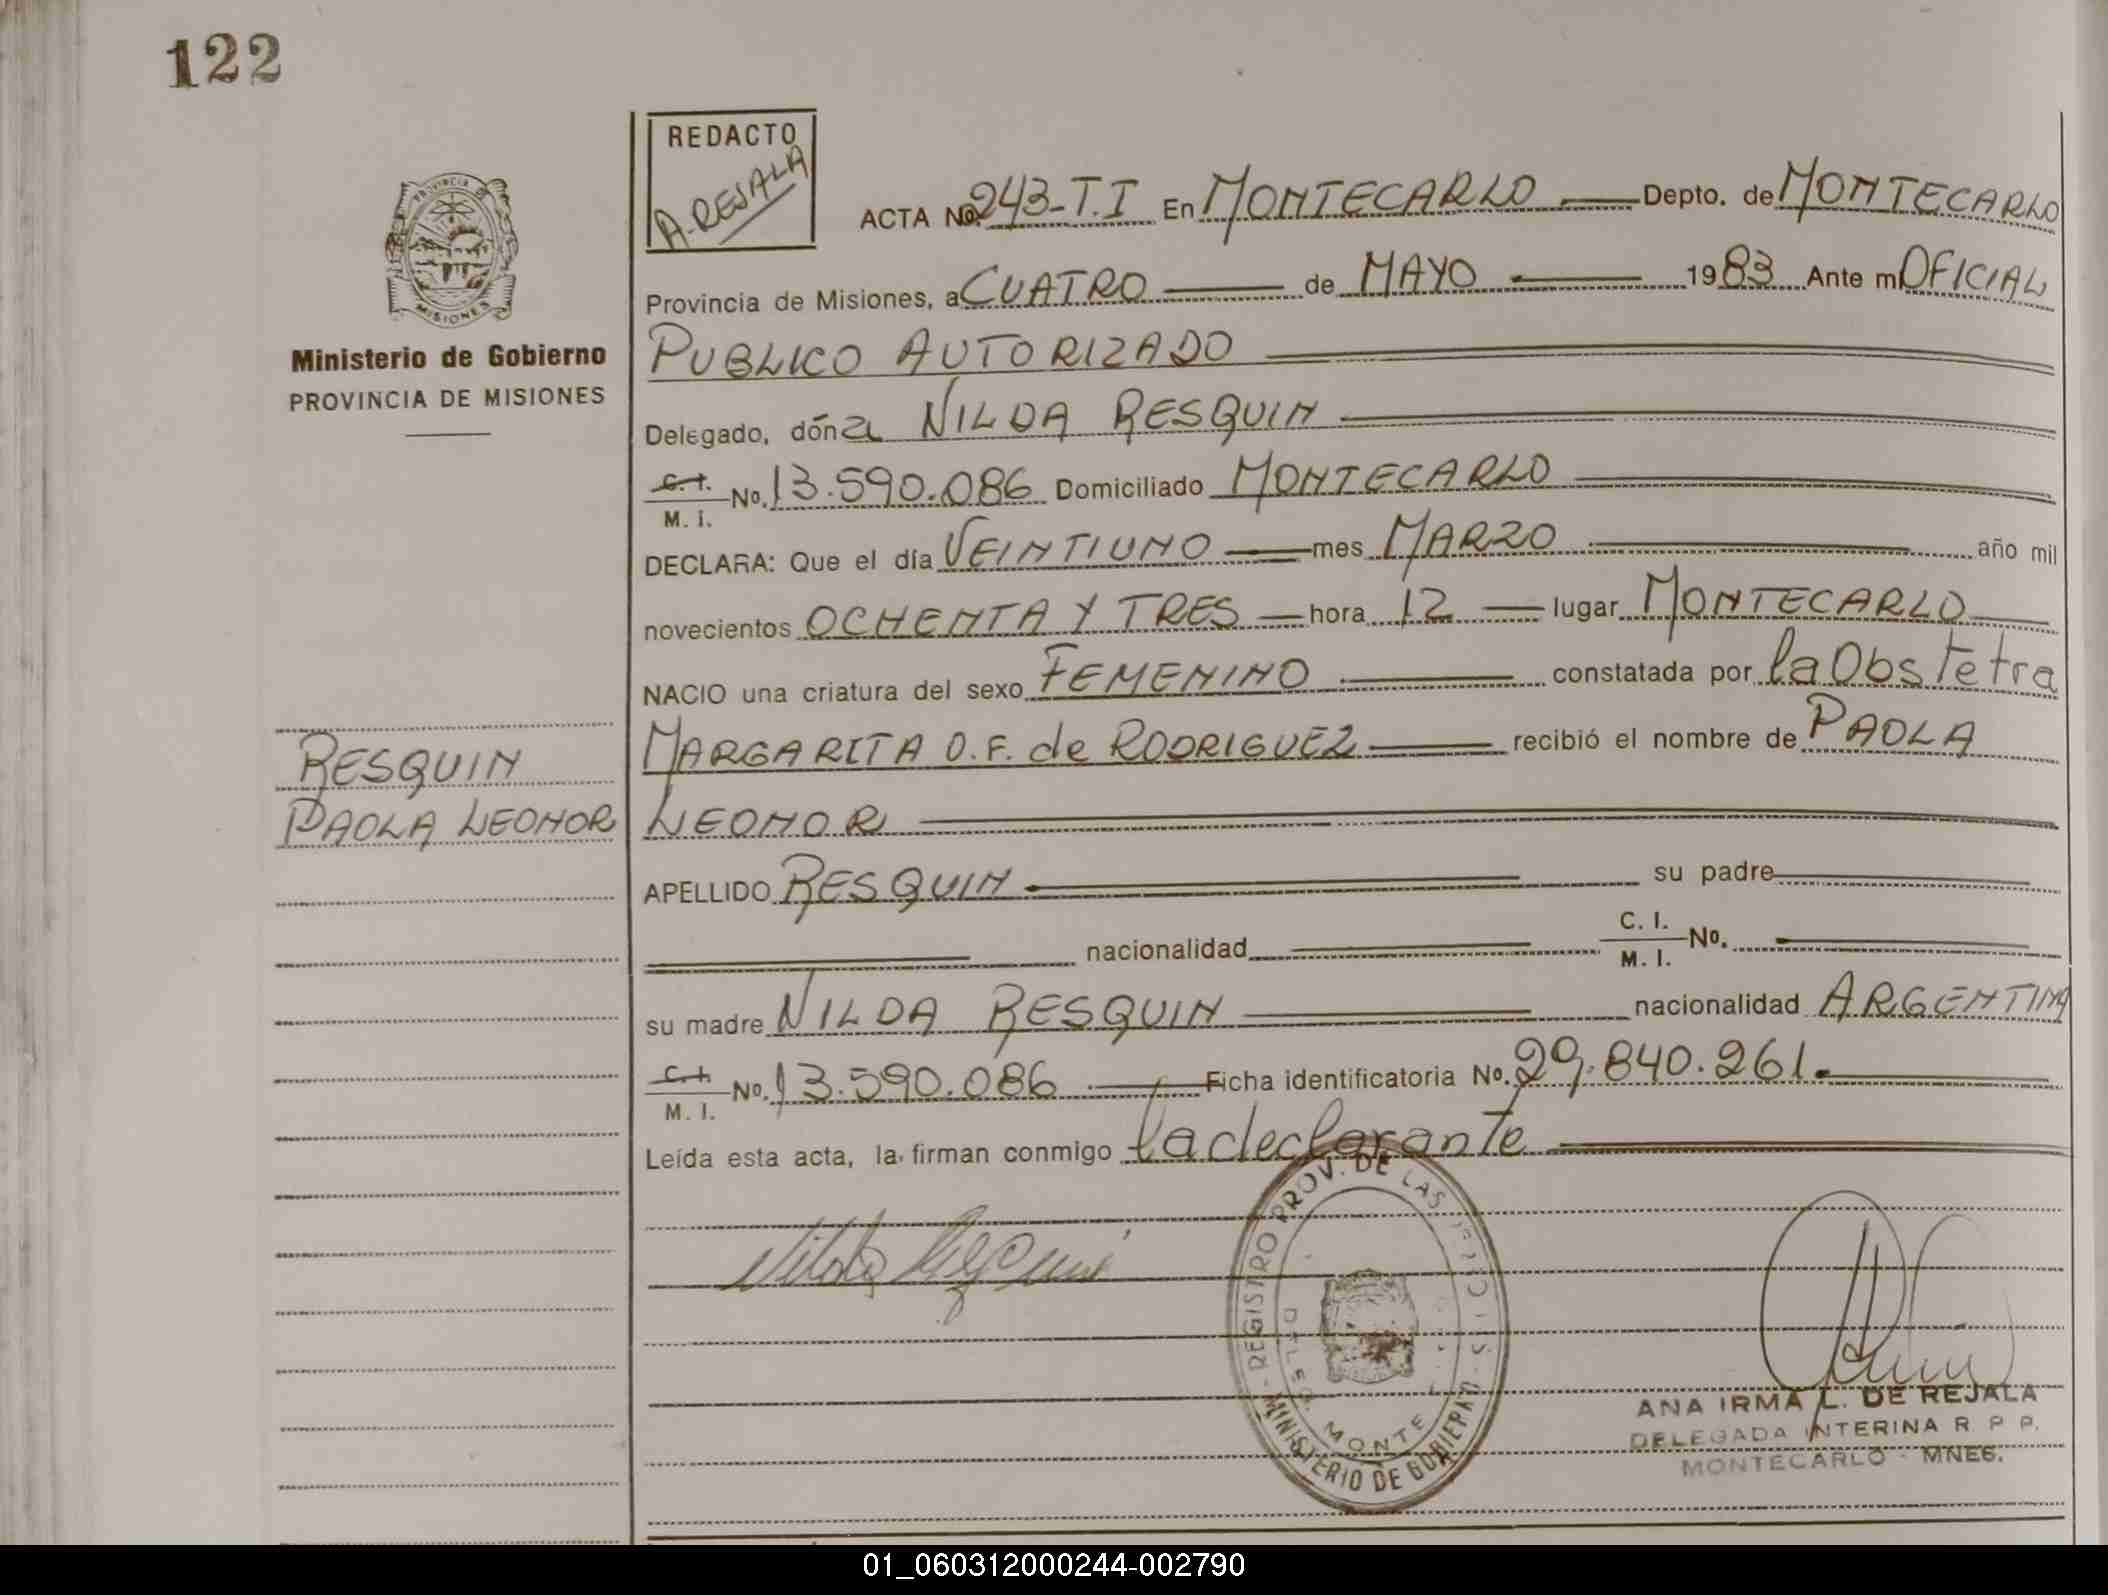 122
REDACTO
A. REJALA
ACTA No. 243-T.I En MONTECARLO Depto. de MONTECARLO
Provincia de Misiones, a CUATRO de MAYO 1983 Ante mi OFICIAL
PUBLICO AUTORIZADO
PROVINCIA DE
MISIONES
Ministerio de Gobierno
PROVINCIA DE MISIONES
Delegado, dóna NILDA RESQUIN
C. I.
M. I. No. 13.590.086 Domiciliado MONTECARLO
DECLARA: Que el día VEINTIUNO mes MARZO año mil
novecientos OCHENTA Y TRES hora 12 lugar MONTECARLO
NACIO una criatura del sexo FEMENINO constatada por la Obstetra
MARGARITA O.F. de RODRIGUEZ recibió el nombre de PAOLA
LEONOR
RESQUIN
PAOLA LEONOR
APELLIDO RESQUIN su padre
nacionalidad C. I.
M. I. No.
su madre NILDA RESQUIN nacionalidad ARGENTINA
C. I.
M. I. No. 13.590.086 Ficha identificatoria No. 29.840.261.
Leída esta acta, la firman conmigo la declarante
Nilda Resquin
REGISTRO PROV. DE LAS
MINISTERIO DE GOBIERNO
DELEG. MONTE
ANA IRMA L. DE REJALA
DELEGADA INTERINA R. P. P.
MONTECARLO - MNES.
01_060312000244-002790